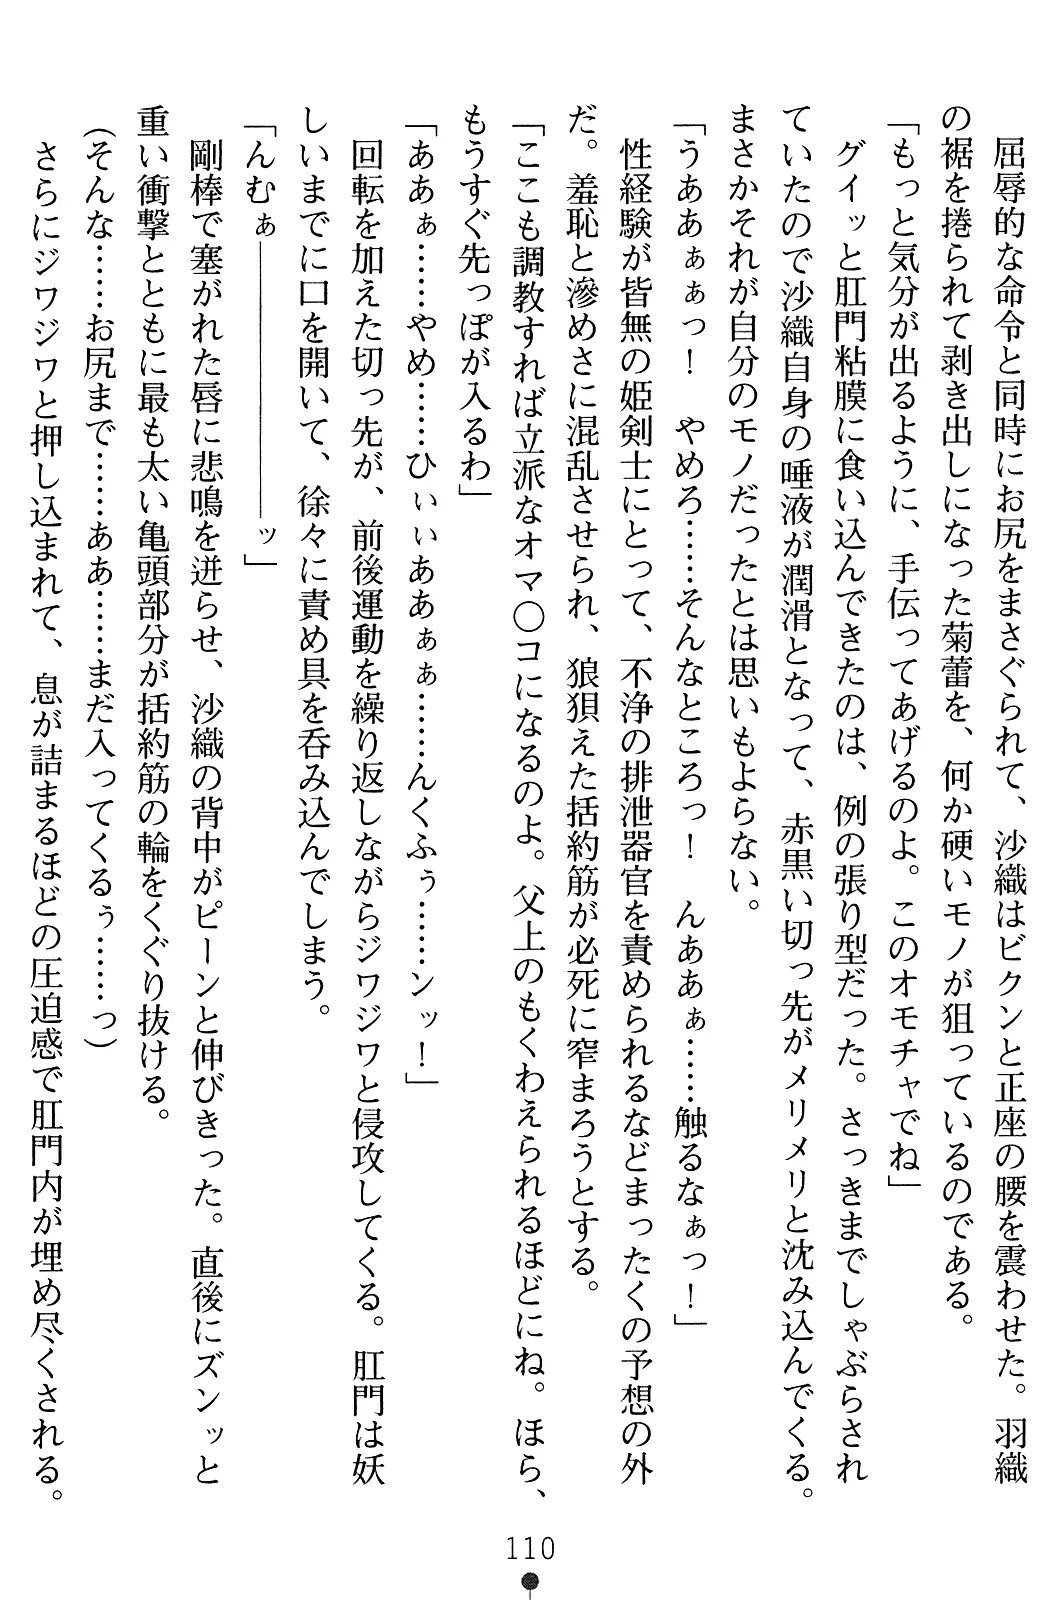 屈辱的な命令と同時にお尻をまさぐられて、沙織はビクンと正座の腰を震わせた。羽織
の裾を捲られて剥き出しになった菊蕾を、何か硬いモノが狙っているのである。
「もっと気分が出るように、手伝ってあげるのよ。このオモチャでね」
グイッと肛門粘膜に食い込んできたのは、例の張り型だった。さっきまでしゃぶらされ
ていたので沙織自身の唾液が潤滑となって、赤黒い切っ先がメリメリと沈み込んでくる。
まさかそれが自分のモノだったとは思いもよらない。
「うああぁぁっ！　やめろ……そんなところっ！　んああぁ……触るなぁっ！」
性経験が皆無の姫剣士にとって、不浄の排泄器官を責められるなどまったくの予想の外
だ。羞恥と滲めさに混乱させられ、狼狽えた括約筋が必死に窄まろうとする。
「ここも調教すれば立派なオマ〇コになるのよ。父上のもくわえられるほどにね。ほら、
もうすぐ先っぽが入るわ」
「ああぁ……やめ……ひぃぃああぁぁ……んくふぅ……ンッ！」
回転を加えた切っ先が、前後運動を繰り返しながらジワジワと侵攻してくる。肛門は妖
しいまでに口を開いて、徐々に責め具を呑み込んでしまう。
「んむぁ――――――――ッ」
剛棒で塞がれた唇に悲鳴を迸らせ、沙織の背中がピーンと伸びきった。直後にズンッと
重い衝撃とともに最も太い亀頭部分が括約筋の輪をくぐり抜ける。
（そんな……お尻まで……ああ……まだ入ってくるぅ……っ）
さらにジワジワと押し込まれて、息が詰まるほどの圧迫感で肛門内が埋め尽くされる。
110